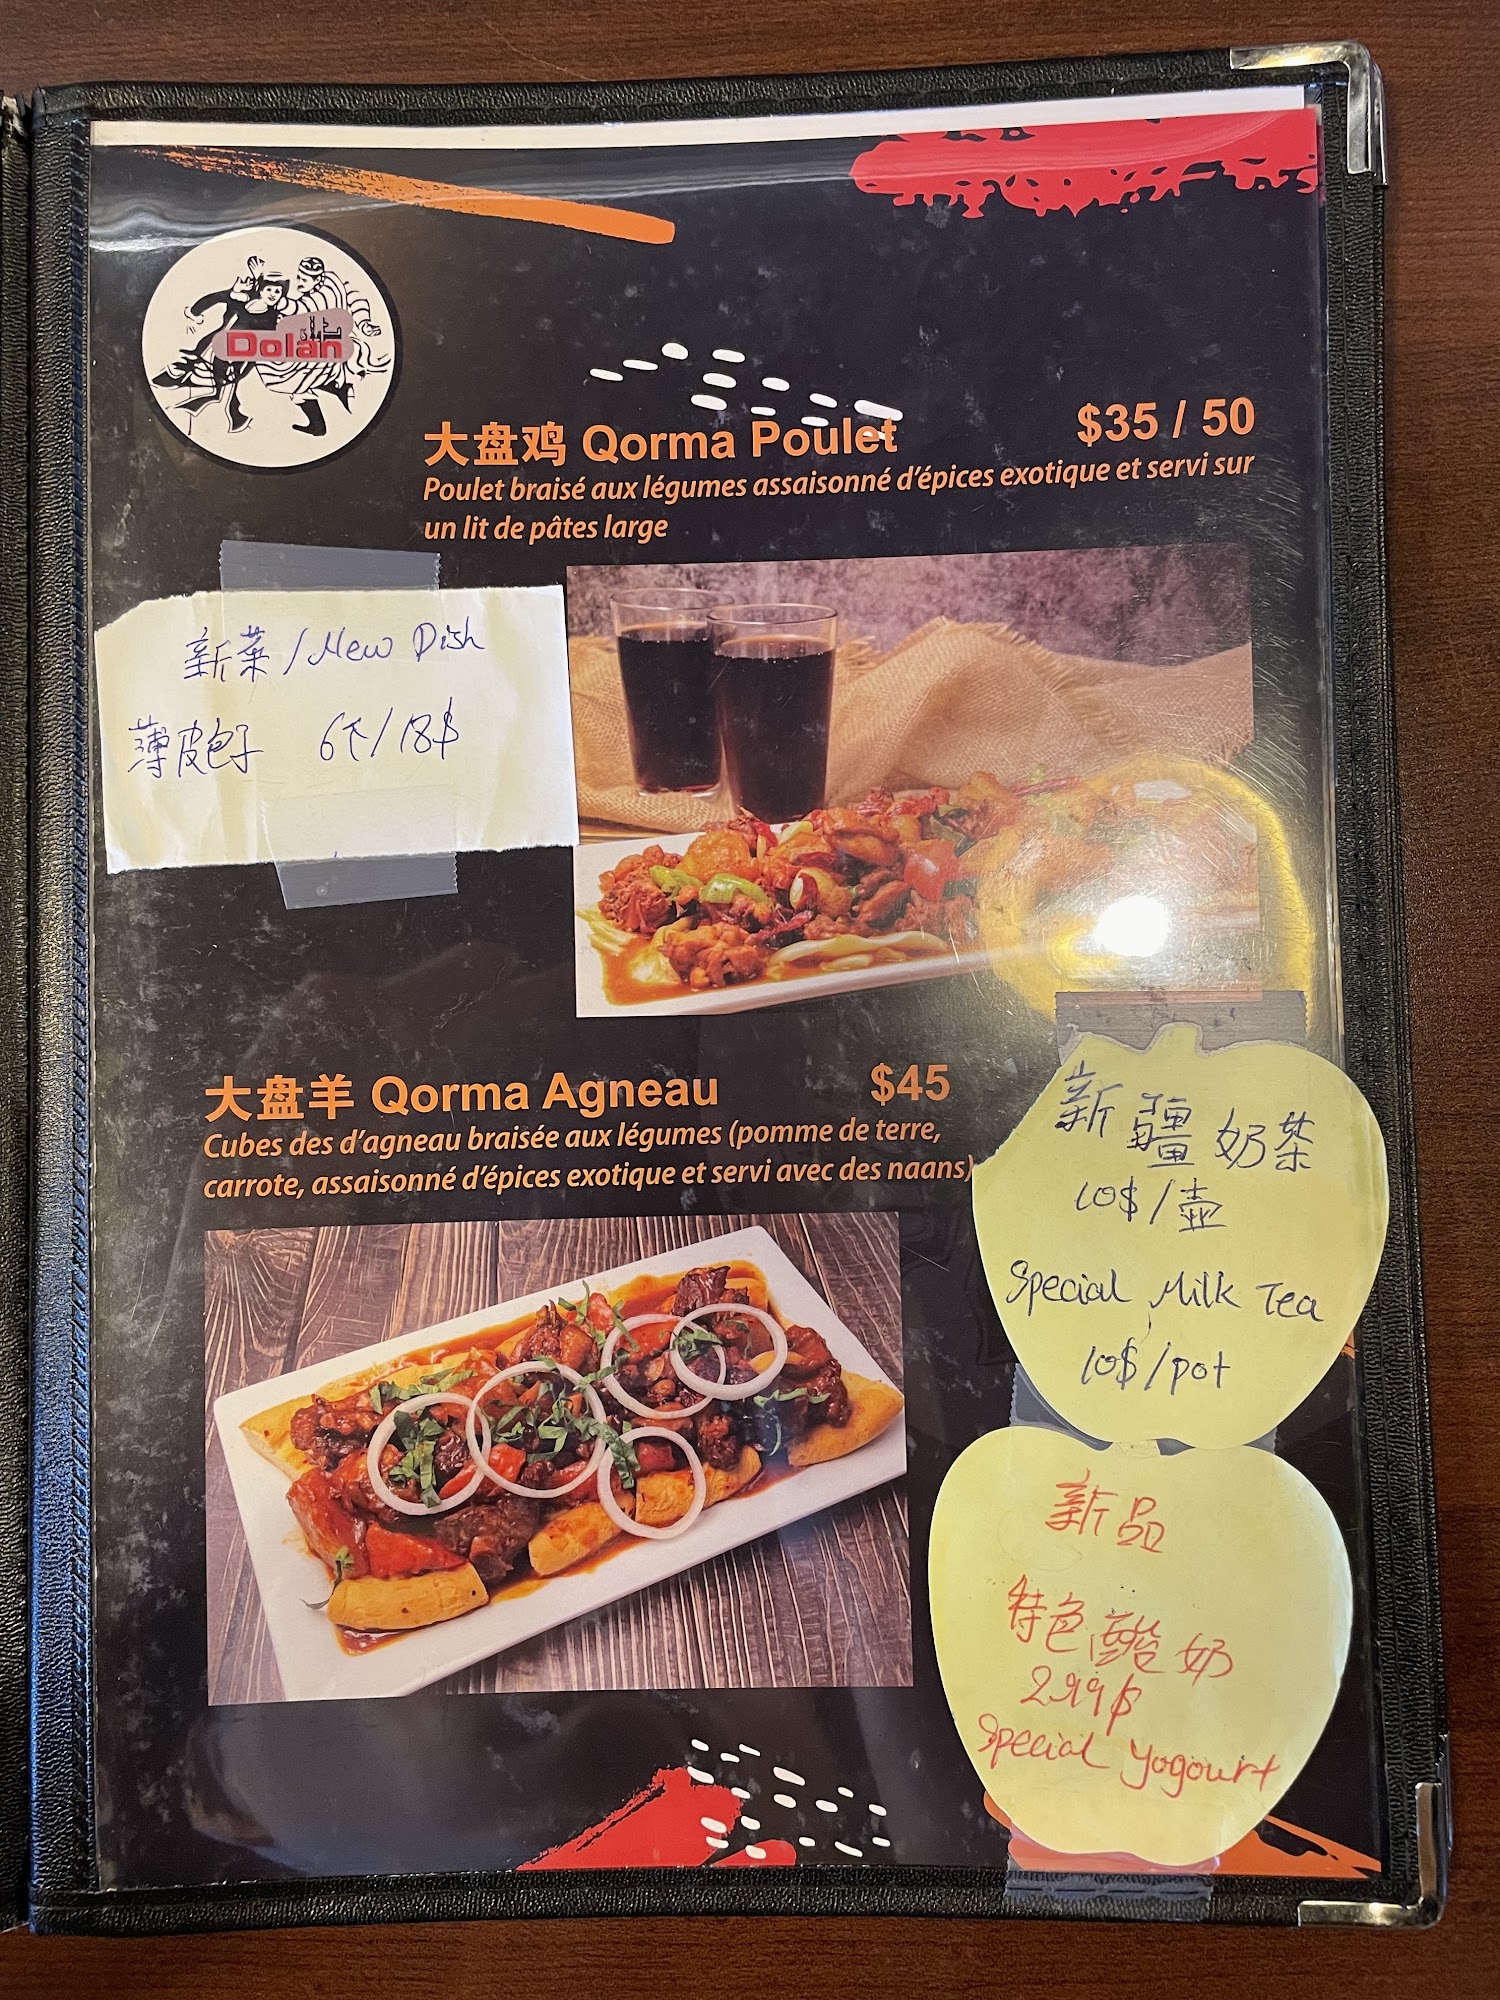 Dolan
大盘鸡 Qorma Poulet $35 / 50
Poulet braisé aux légumes assaisonné d'épices exotique et servi sur
un lit de pâtes large
新菜/New Dish
薄皮包子 6个/18$
大盘羊 Qorma Agneau $45
Cubes des d'agneau braisée aux légumes (pomme de terre,
carrote, assaisonné d'épices exotique et servi avec des naans)
新疆奶茶
10$/壶
Special Milk Tea
10$/pot
新品
特色酸奶
2.99$
Special Yogourt